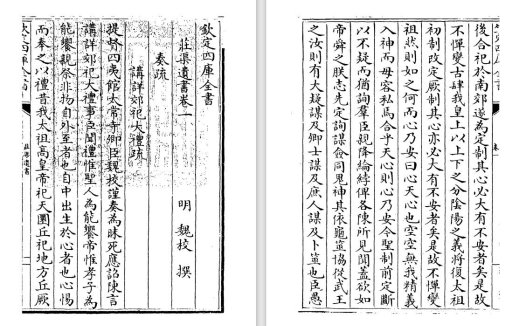 欽定四庫全書
莊渠遺書卷一
明 魏校 撰
奏疏
講詳郊祀大禮疏
提督四夷館太常寺卿臣魏校謹奏為昧死應詔陳言
講詳郊祀大禮事臣聞禮惟聖人為能饗帝惟孝子為
能饗親祭非物自外至者也自中出生於心者也心惕
而奉之以禮昔我太祖高皇帝祀天圜丘祀地方丘厥
後合祀於南郊遂為定制其心必大有不安者矣是故
不憚變古肆我皇上以上下之分陰陽之義將復太祖
初制改定厥制其心亦必大有不安者矣是故不憚變
祖然則如之何而心乃安曰心天也空空無我精義
入神而毋容私焉合乎天心則心乃安今聖制前定斷
以不疑而猶詢羣臣親降綸綍俾各陳所見聞蓋欲如
帝舜之朕志先定詢謀僉同鬼神其依龜筮協從武王
之汝則有大疑謀及卿士謀及庶人謀及卜筮也臣愚